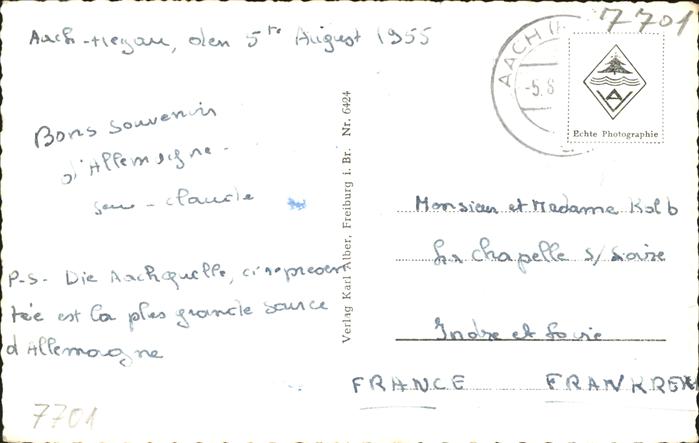 7701
Aach-Hegau, den 5te August 1955
AACH
-5.8
Echte Photographie
Bons souvenirs
d'Allemagne -
Jean-Claude
P.S. Die Aachquelle, ci représen
tée est la plus grande source
d'Allemagne
7701
Verlag Karl Alber, Freiburg i. Br. Nr. 6424
Monsieur et Madame Kolb
La Chapelle s/Loire
Indre et Loire
FRANCE FRANKREI